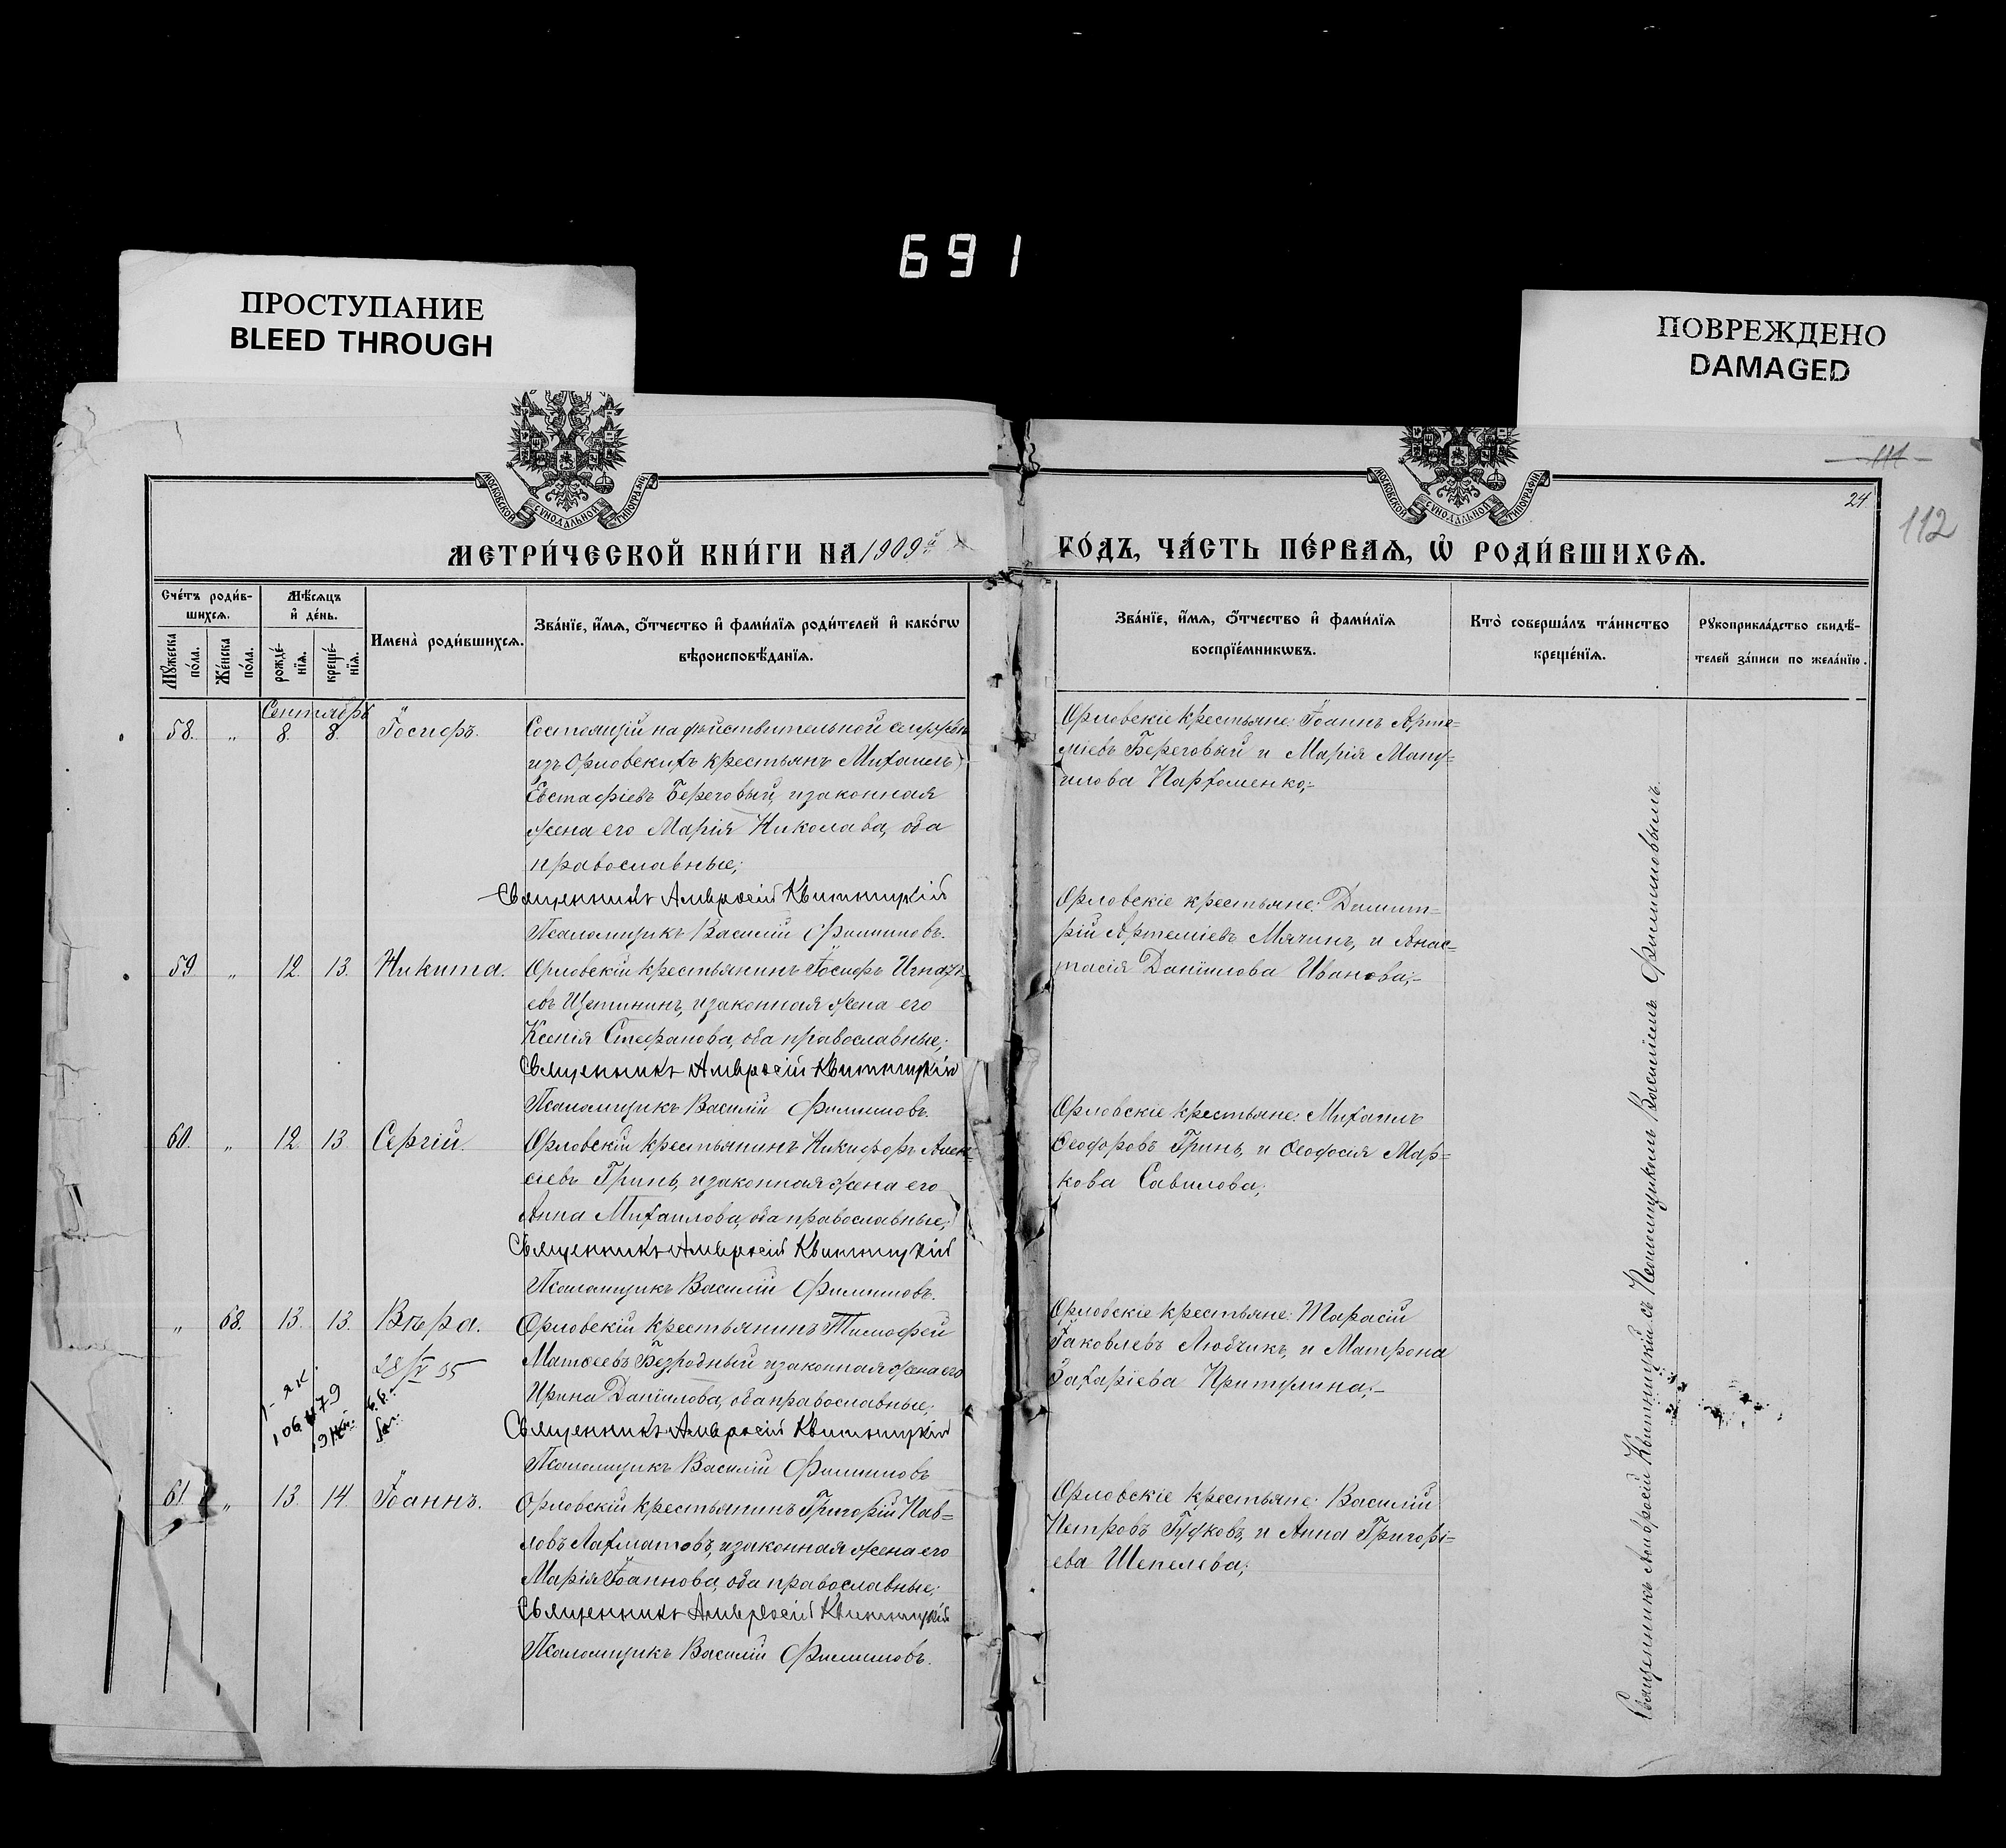 691
ПРОСТУПАНИЕ
BLEED THROUGH
ПОВРЕЖДЕНО
DAMAGED
МОСКОВСКОЙ СѴНОДАЛЬНОЙ ТИПОГРАФІИ
МОСКОВСКОЙ СѴНОДАЛЬНОЙ ТИПОГРАФІИ
111
24
112
МЕТРИ́ЧЕСКОЙ КНИ́ГИ НА 1909й
ГО́ДЪ, ЧА́СТЬ ПЕ́РВАѦ, Ѡ҆ РОДИ́ВШИХСѦ.
Сче́тъ роди́в-
шихсѧ.
Мꙋ́жеска по́ла.
Же́нска по́ла.
Мѣ́сѧцъ
и҆ де́нь.
рожде́-
нїѧ.
креще́-
нїѧ.
Имена̀ роди́вшихсѧ.
Зва́нїе, и҆́мѧ, ѻ҆́тчество и҆ фами́лїѧ роди́телей и҆ како́гѡ
вѣроисповѣ́данїѧ.
Зва́нїе, и҆́мѧ, ѻ҆́тчество и҆ фами́лїѧ
воспрїе́мникѡвъ.
Кто̀ соверша́лъ та́инство
креще́нїѧ.
Рꙋкоприкла́дство свидѣ́-
телей за́писи по жела́нїю.
Сентябрь
58. „ 8. 8. Іосифъ.
Состоящій на дѣйствительной службѣ
изъ Орловскихъ крестьянъ Михаилъ
Евстафіевъ Береговый, и законная
жена его Марія Николаева, оба
православные;
Священникъ Амвросій Квитницкій
Псаломщикъ Василій Филиповъ.
Орловскіе крестьяне: Іоаннъ Арте=
міевъ Береговый и Марія Ману=
илова Пархоменко;-
59 „ 12. 13. Никита.
Орловскій крестьянинъ Іосифъ Игнать=
евъ Щетининъ, и законная жена его
Ксенія Стефанова, оба православные;
Священникъ Амвросій Квитницкій
Псаломщикъ Василій Филиповъ.
Орловскіе крестьяне: Димит=
рій Артеміевъ Мячинъ, и Анас=
тасія Даніилова Иванова;-
60. „ 12. 13. Сергій.
Орловскій крестьянинъ Никифоръ Алек=
сіевъ Гринь, и законная жена его
Анна Михаилова, оба православные;
Священникъ Амвросій Квитницкій
Псаломщикъ Василій Филиповъ.
Орловскіе крестьяне: Михаилъ
Ѳеодоровъ Гринь, и Ѳеодосія Мар=
кова Савилова;
„ 68. 13. 13. Вѣра.
28/V 55
Орловскій крестьянинъ Тимофей
Матѳеевъ Безродный и законная жена его
Ирина Даніилова, оба православные;
Священникъ Амвросій Квитницкій
Псаломщикъ Василій Филиповъ
Орловскіе крестьяне: Тарасій
Іаковлевъ Любчикъ, и Матрона
Захаріева Притулина;-
61. „ 13. 14 Іоаннъ.
Орловскій крестьянинъ Григорій Пав=
ловъ Лахматовъ, и законная жена его
Марія Іоаннова, оба православные;
Священникъ Амвросій Квитницкій
Псаломщикъ Василій Филиповъ.
Орловскіе крестьяне: Василій
Петровъ Гудковъ, и Анна Григорі=
ева Шепелева;
Священникъ Амвросій Квитницкій съ Псаломщикомъ Василіемъ Филиповымъ.